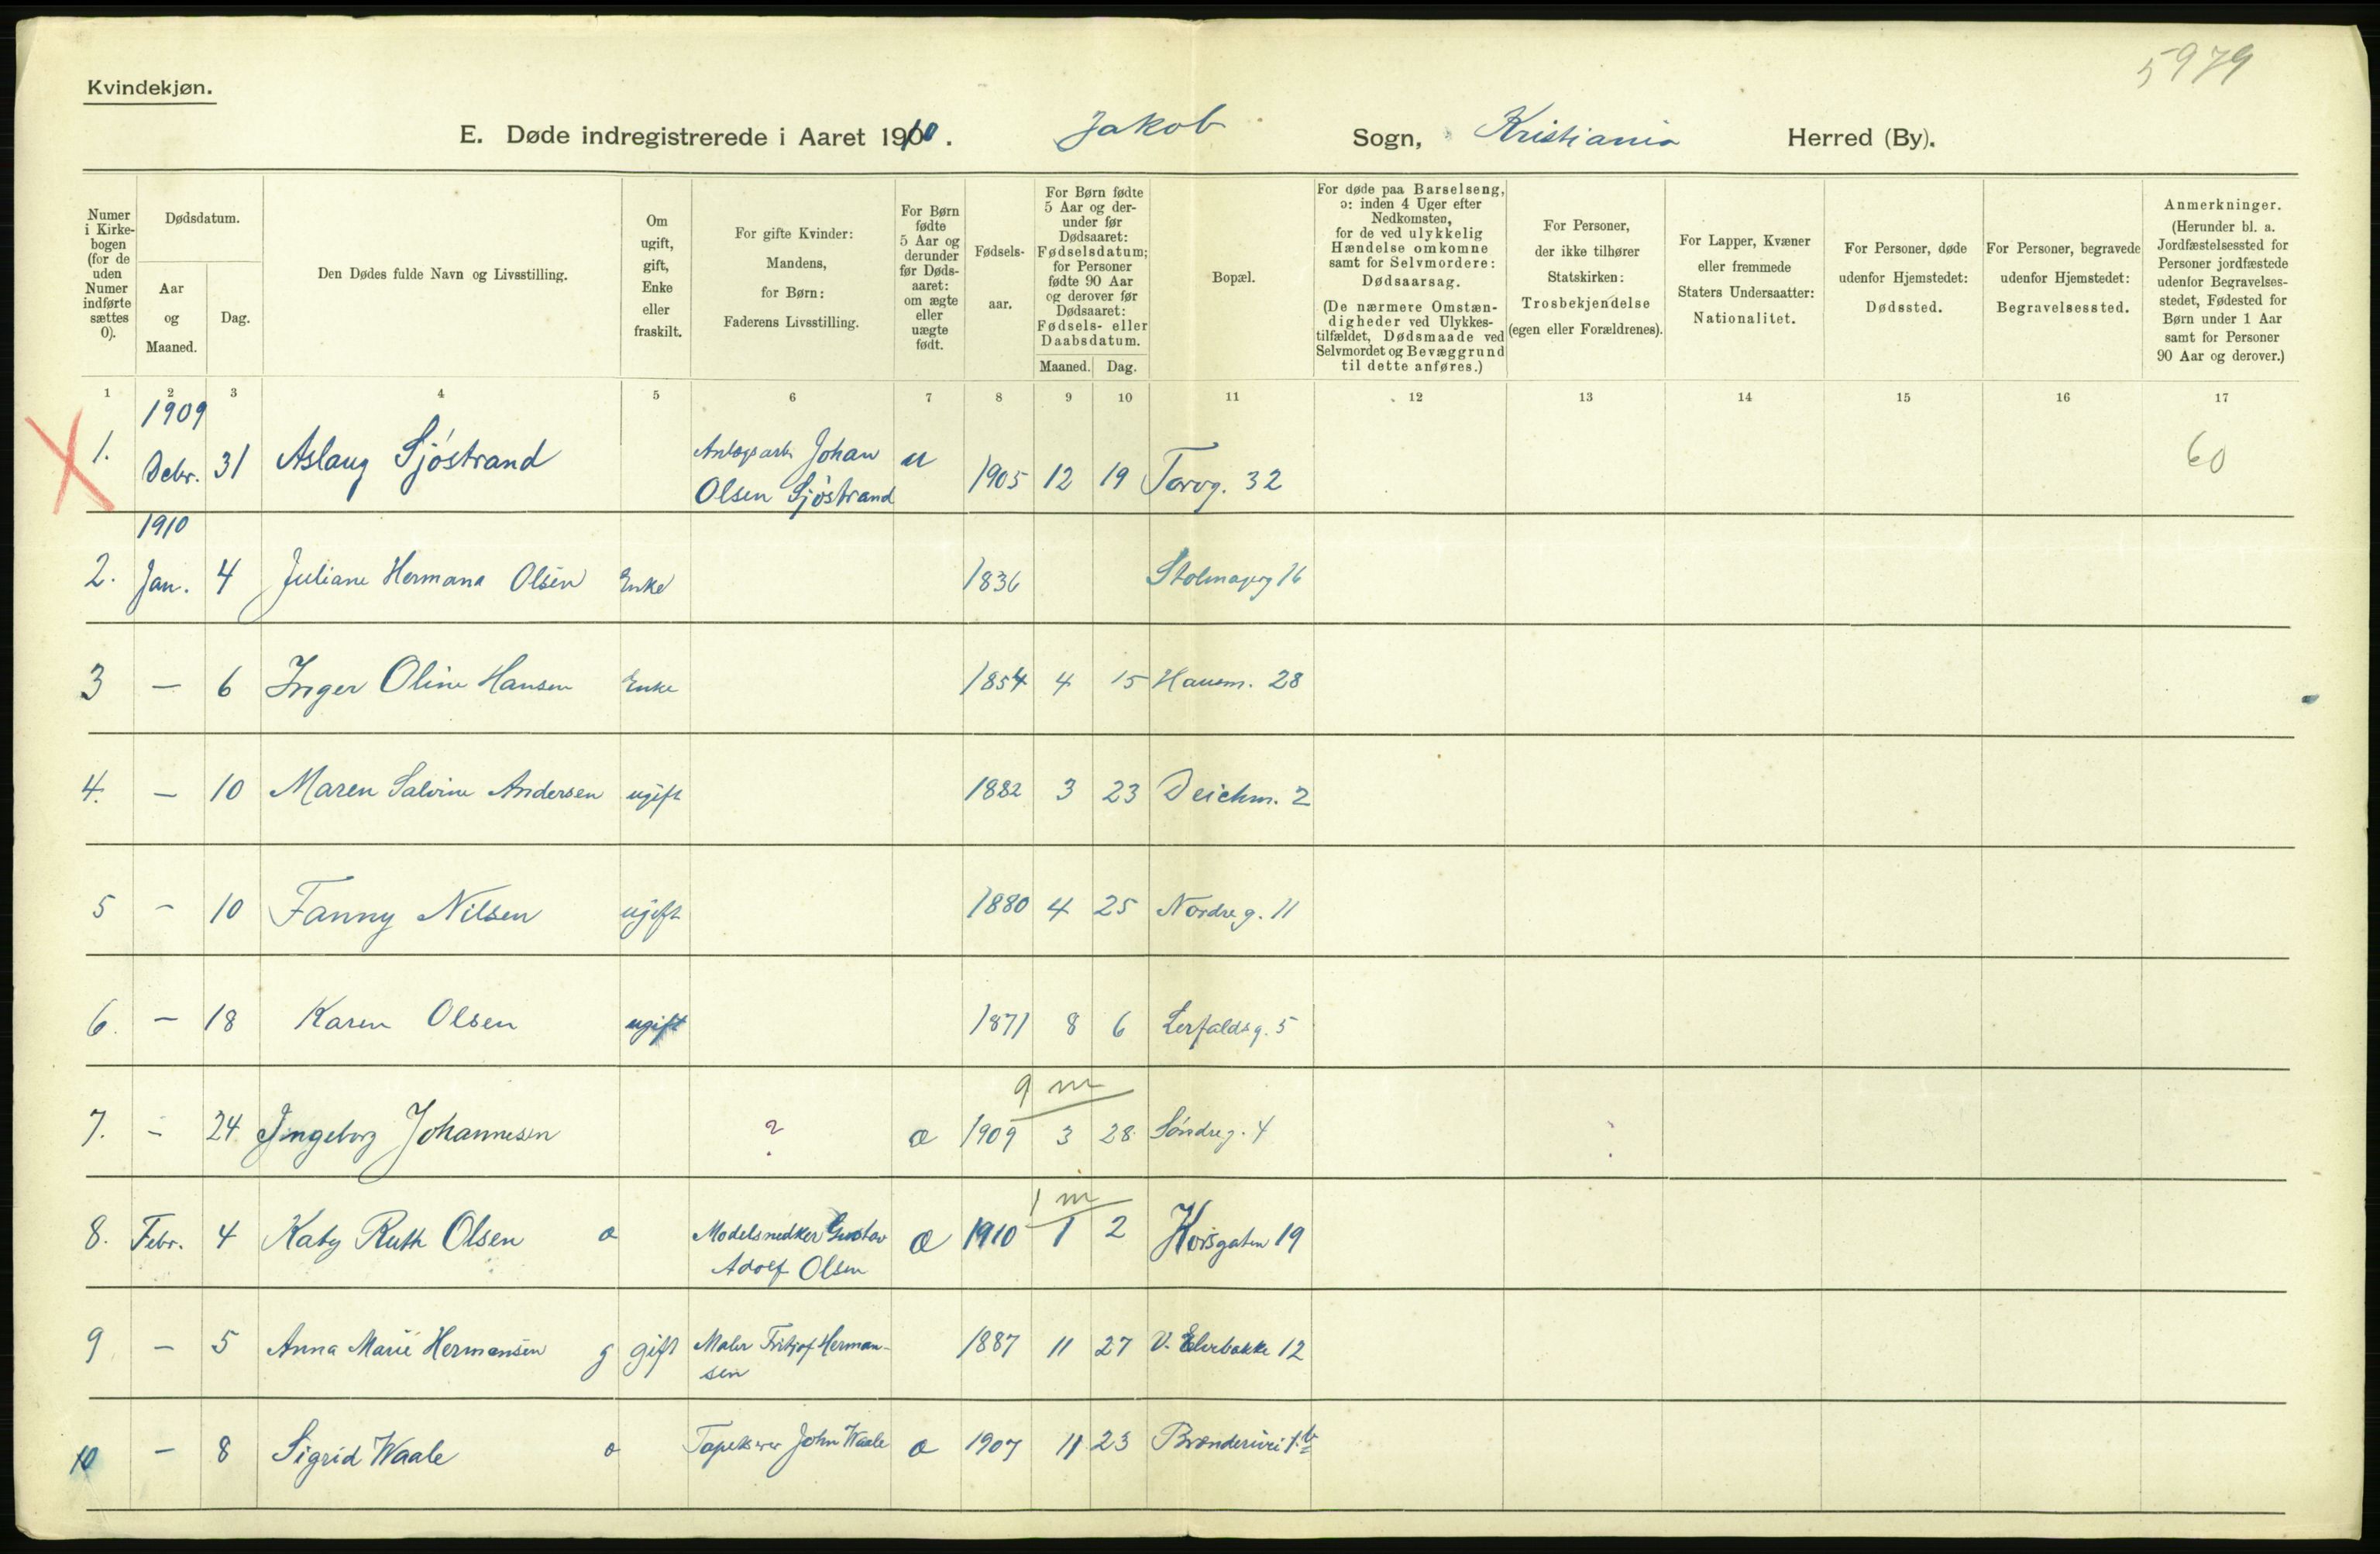 5979
Kvindekjøn.
E. Døde indregistrerede i Aaret 1910. Jakob Sogn, Kristiania Herred (By).
Numer i Kirkebogen (for de uden Numer indførte sættes 0).
Dødsdatum.
Aar og Maaned.
Dag.
Den Dødes fulde Navn og Livsstilling.
Om ugift, gift, Enke eller fraskilt.
For gifte Kvinder: Mandens, for Børn: Faderens Livsstilling.
For Børn fødte 5 Aar og derunder før Dødsaaret: om ægte eller uægte født.
Fødselsaar.
For Børn fødte 5 Aar og derunder før Dødsaaret: Fødselsdatum; for Personer fødte 90 Aar og derover før Dødsaaret: Fødsels- eller Daabsdatum.
Maaned. Dag.
Bopæl.
For døde paa Barselseng, ɔ: inden 4 Uger efter Nedkomsten, for de ved ulykkelig Hændelse omkomne samt for Selvmordere: Dødsaarsag.
(De nærmere Omstændigheder ved Ulykkestilfældet, Dødsmaade ved Selvmordet og Bevæggrund til dette anføres.)
For Personer, der ikke tilhører Statskirken: Trosbekjendelse (egen eller Forældrenes).
For Lapper, Kvæner eller fremmede Staters Undersaatter: Nationalitet.
For Personer, døde udenfor Hjemstedet: Dødssted.
For Personer, begravede udenfor Hjemstedet: Begravelsessted.
Anmerkninger.
(Herunder bl. a. Jordfæstelsessted for Personer jordfæstede udenfor Begravelsesstedet, Fødested for Børn under 1 Aar samt for Personer 90 Aar og derover.)
1 2 3 4 5 6 7 8 9 10 11 12 13 14 15 16 17
1909
1. Debr. 31 Aslaug Sjöstrand Anlægsarb. Johan Olsen Sjöstrand u 1905 12 19 Torvg. 32 60
1910
2. Jan. 4 Juliane Hermana Olsen Enke 1836 Stolmagerg 16
3 — 6 Inger Oline Hansen Enke 1854 4 15 Hausm. 28
4. — 10 Maren Salvine Andersen ugift 1882 3 23 Deichm. 2
5 — 10 Fanny Nilsen ugift 1880 4 25 Nordreg. 11
6. — 18 Karen Olsen ugift 1871 8 6 Lerfaldsg. 5
9 m
7. — 24 Ingeborg Johannesen ? æ 1909 3 28 Söndreg. 4
1 m
8. Febr. 4 Katy Ruth Olsen o Modelsnedker Gustav Adolf Olsen æ 1910 1 2 Korsgaten 19
9 — 5 Anna Marie Hermansen g gift Maler Fritjof Hermansen 1887 11 27 V. Elvebakke 12
10 — 8 Sigrid Waale o Tapetserer John Waale æ 1907 11 23